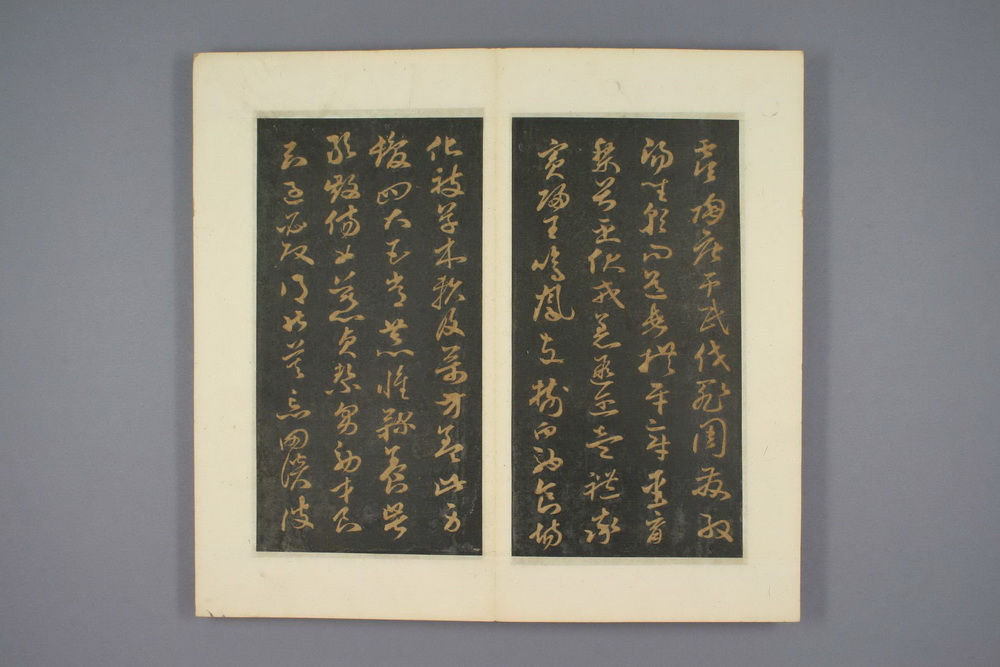 虞陶唐弔民伐罪周發殷
湯坐朝問道垂拱平章愛育
黎首臣伏戎羌遐邇壹體率
賓歸王鳴鳳在樹白駒食場
化被草木賴及萬方蓋此身
髮四大五常恭惟鞠養豈
敢毀傷女慕貞絜男効才良
知過必改得能莫忘罔談彼